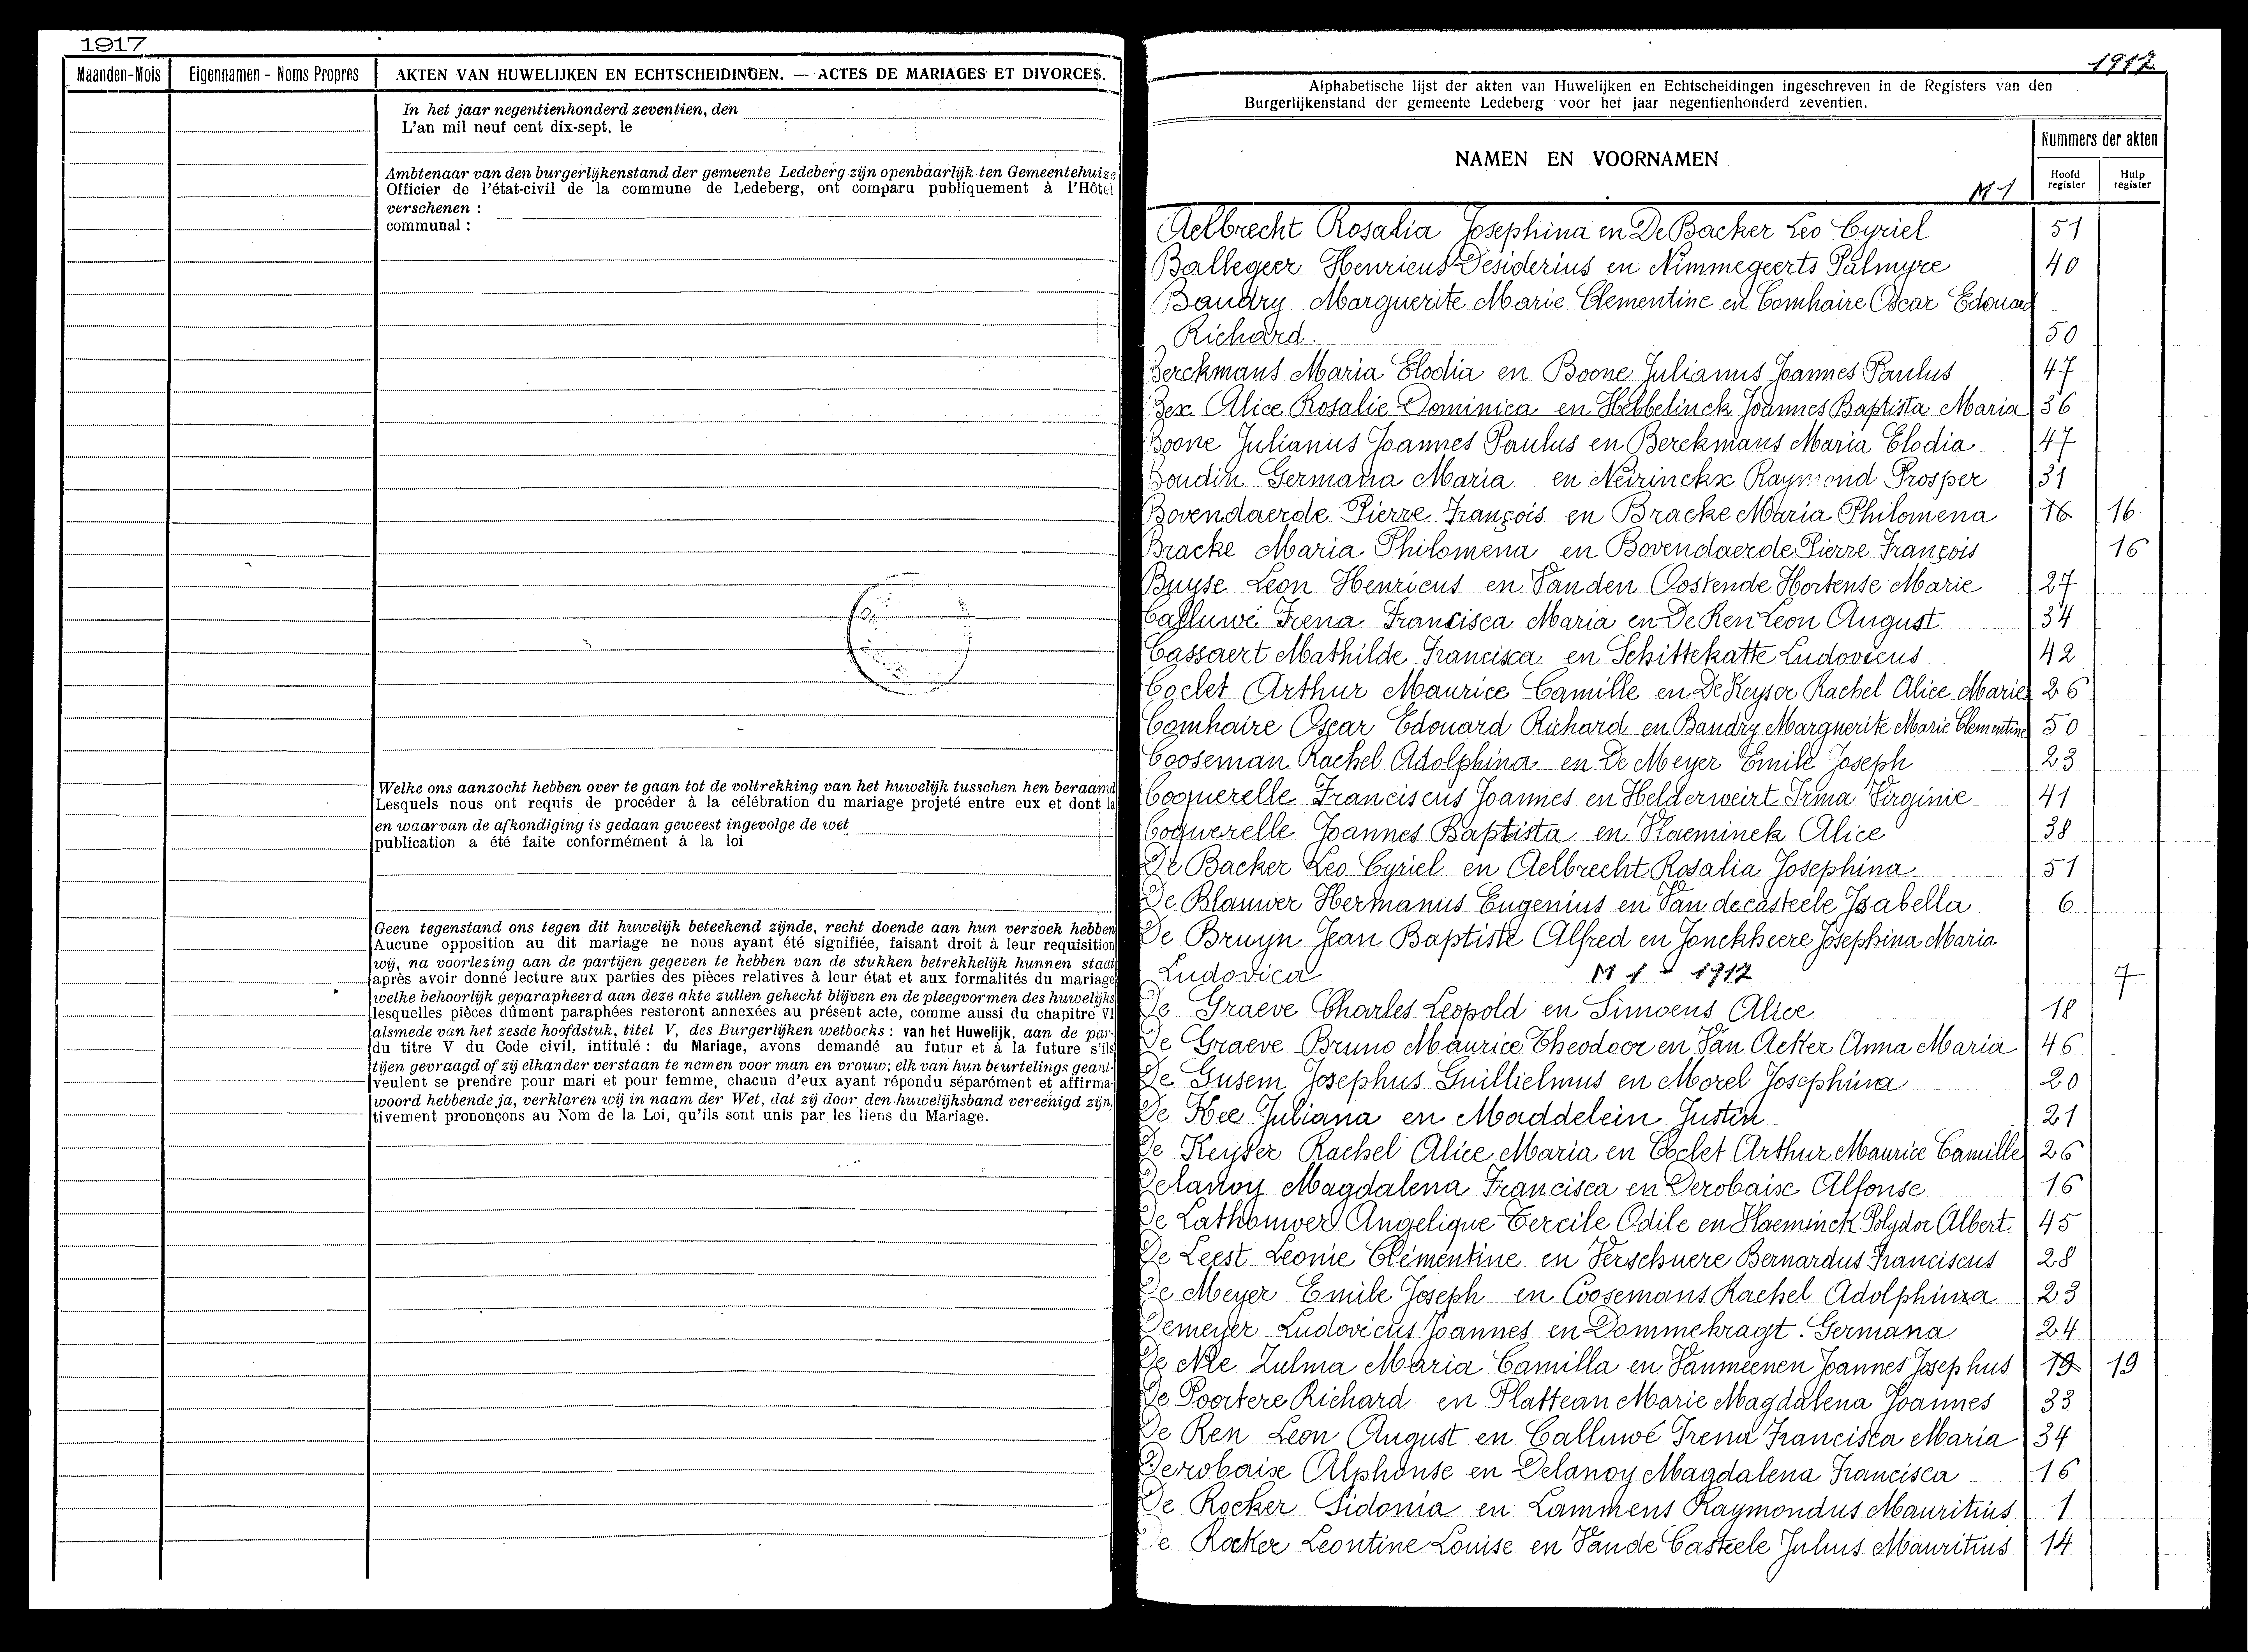 1917
Maanden-Mois
Eigennamen - Noms Propres
AKTEN VAN HUWELIJKEN EN ECHTSCHEIDINGEN. — ACTES DE MARIAGES ET DIVORCES.
In het jaar negentienhonderd zeventien, den
L'an mil neuf cent dix-sept, le
Ambtenaar van den burgerlijkenstand der gemeente Ledeberg zijn openbaarlijk ten Gemeentehuize
Officier de l'état-civil de la commune de Ledeberg, ont comparu publiquement à l'Hôtel
verschenen :
communal :
Welke ons aanzocht hebben over te gaan tot de voltrekking van het huwelijk tusschen hen beraamd
Lesquels nous ont requis de procéder à la célébration du mariage projeté entre eux et dont la
en waarvan de afkondiging is gedaan geweest ingevolge de wet
publication a été faite conformément à la loi
Geen tegenstand ons tegen dit huwelijk beteekend zijnde, recht doende aan hun verzoek hebben
Aucune opposition au dit mariage ne nous ayant été signifiée, faisant droit à leur requisition
wij, na voorlezing aan de partijen gegeven te hebben van de stukken betrekkelijk hunnen staat
après avoir donné lecture aux parties des pièces relatives à leur état et aux formalités du mariage
welke behoorlijk geparapheerd aan deze akte zullen gehecht blijven en de pleegvormen des huwelijks
lesquelles pièces dûment paraphées resteront annexées au présent acte, comme aussi du chapitre VI
alsmede van het zesde hoofdstuk, titel V, des Burgerlijken wetboeks : van het Huwelijk, aan de par-
du titre V du Code civil, intitulé : du Mariage, avons demandé au futur et à la future s'ils
tijen gevraagd of zij elkander verstaan te nemen voor man en vrouw; elk van hun beurtelings geant-
veulent se prendre pour mari et pour femme, chacun d'eux ayant répondu séparément et affirma-
woord hebbende ja, verklaren wij in naam der Wet, dat zij door den huwelijksband vereenigd zijn.
tivement prononçons au Nom de la Loi, qu'ils sont unis par les liens du Mariage.
1917
Alphabetische lijst der akten van Huwelijken en Echtscheidingen ingeschreven in de Registers van den
Burgerlijkenstand der gemeente Ledeberg voor het jaar negentienhonderd zeventien.
NAMEN EN VOORNAMEN
M 1
Nummers der akten
Hoofd register
Hulp register
Aelbrecht Rosalia Josephina en De Backer Leo Cyriel 51
Ballegeer Henricus Desiderius en Nimmegeerts Palmyre 40
Baudry Marguerite Marie Clementine en Comhaire Oscar Edouard
Richard. 50
Berckmans Maria Elodia en Boone Julianus Joannes Paulus 47
Bex Alice Rosalie Dominica en Hebbelinck Joannes Baptista Maria 36
Boone Julianus Joannes Paulus en Berckmans Maria Elodia 47
Boudin Germana Maria en Neirinckx Raymond Prosper 31
Bovendaerde Pierre François en Bracke Maria Philomena 16 16
Bracke Maria Philomena en Bovendaerde Pierre François 16
Buyse Leon Henricus en Van den Oostende Hortense Marie 27
Calluwé Irena Francisca Maria en De Ren Leon August 34
Cassaert Mathilde Francisca en Schittekatte Ludovicus 42
Coclet Arthur Maurice Camille en De Keyser Rachel Alice Marie 26
Comhaire Oscar Edouard Richard en Baudry Marguerite Marie Clementine 50
Cooseman Rachel Adolphina en De Meyer Emile Joseph 23
Coquerelle Franciscus Joannes en Helderweirt Irma Virginie 41
Coquerelle Joannes Baptista en Vlaeminck Alice 38
De Backer Leo Cyriel en Aelbrecht Rosalia Josephina 51
De Blauwer Hermanus Eugenius en Van de casteele Isabella 6
De Bruyn Jean Baptiste Alfred en Jonckheere Josephina Maria
Ludovica M 1 - 1917 7
De Graeve Charles Leopold en Simoens Alice 18
De Graeve Bruno Maurice Theodoor en Van Acker Anna Maria 46
De Gusem Josephus Guillielmus en Morel Josephina 20
De Kee Juliana en Maddelein Justin 21
De Keyser Rachel Alice Maria en Coclet Arthur Maurice Camille 26
Delanoy Magdalena Francisca en Derobaise Alfonse 16
De Lathouwer Angelique Cercile Odile en Vlaeminck Polydor Albert. 45
De Leest Leonie Clementine en Verschuere Bernardus Franciscus 28
De Meyer Emile Joseph en Coosemans Rachel Adolphina 23
Demeyer Ludovicus Joannes en Dommekragt Germana 24
De Nre Zulma Maria Camilla en Vanmeenen Joannes Josephus 19 19
De Poortere Richard en Platteau Marie Magdalena Joannes 33
De Ren Leon August en Calluwé Irena Francisca Maria 34
Derobaise Alphonse en Delanoy Magdalena Francisca 16
De Rocker Sidonia en Lammens Raymondus Mauritius 1
De Rocker Leontine Louise en Van de Casteele Julius Mauritius 14